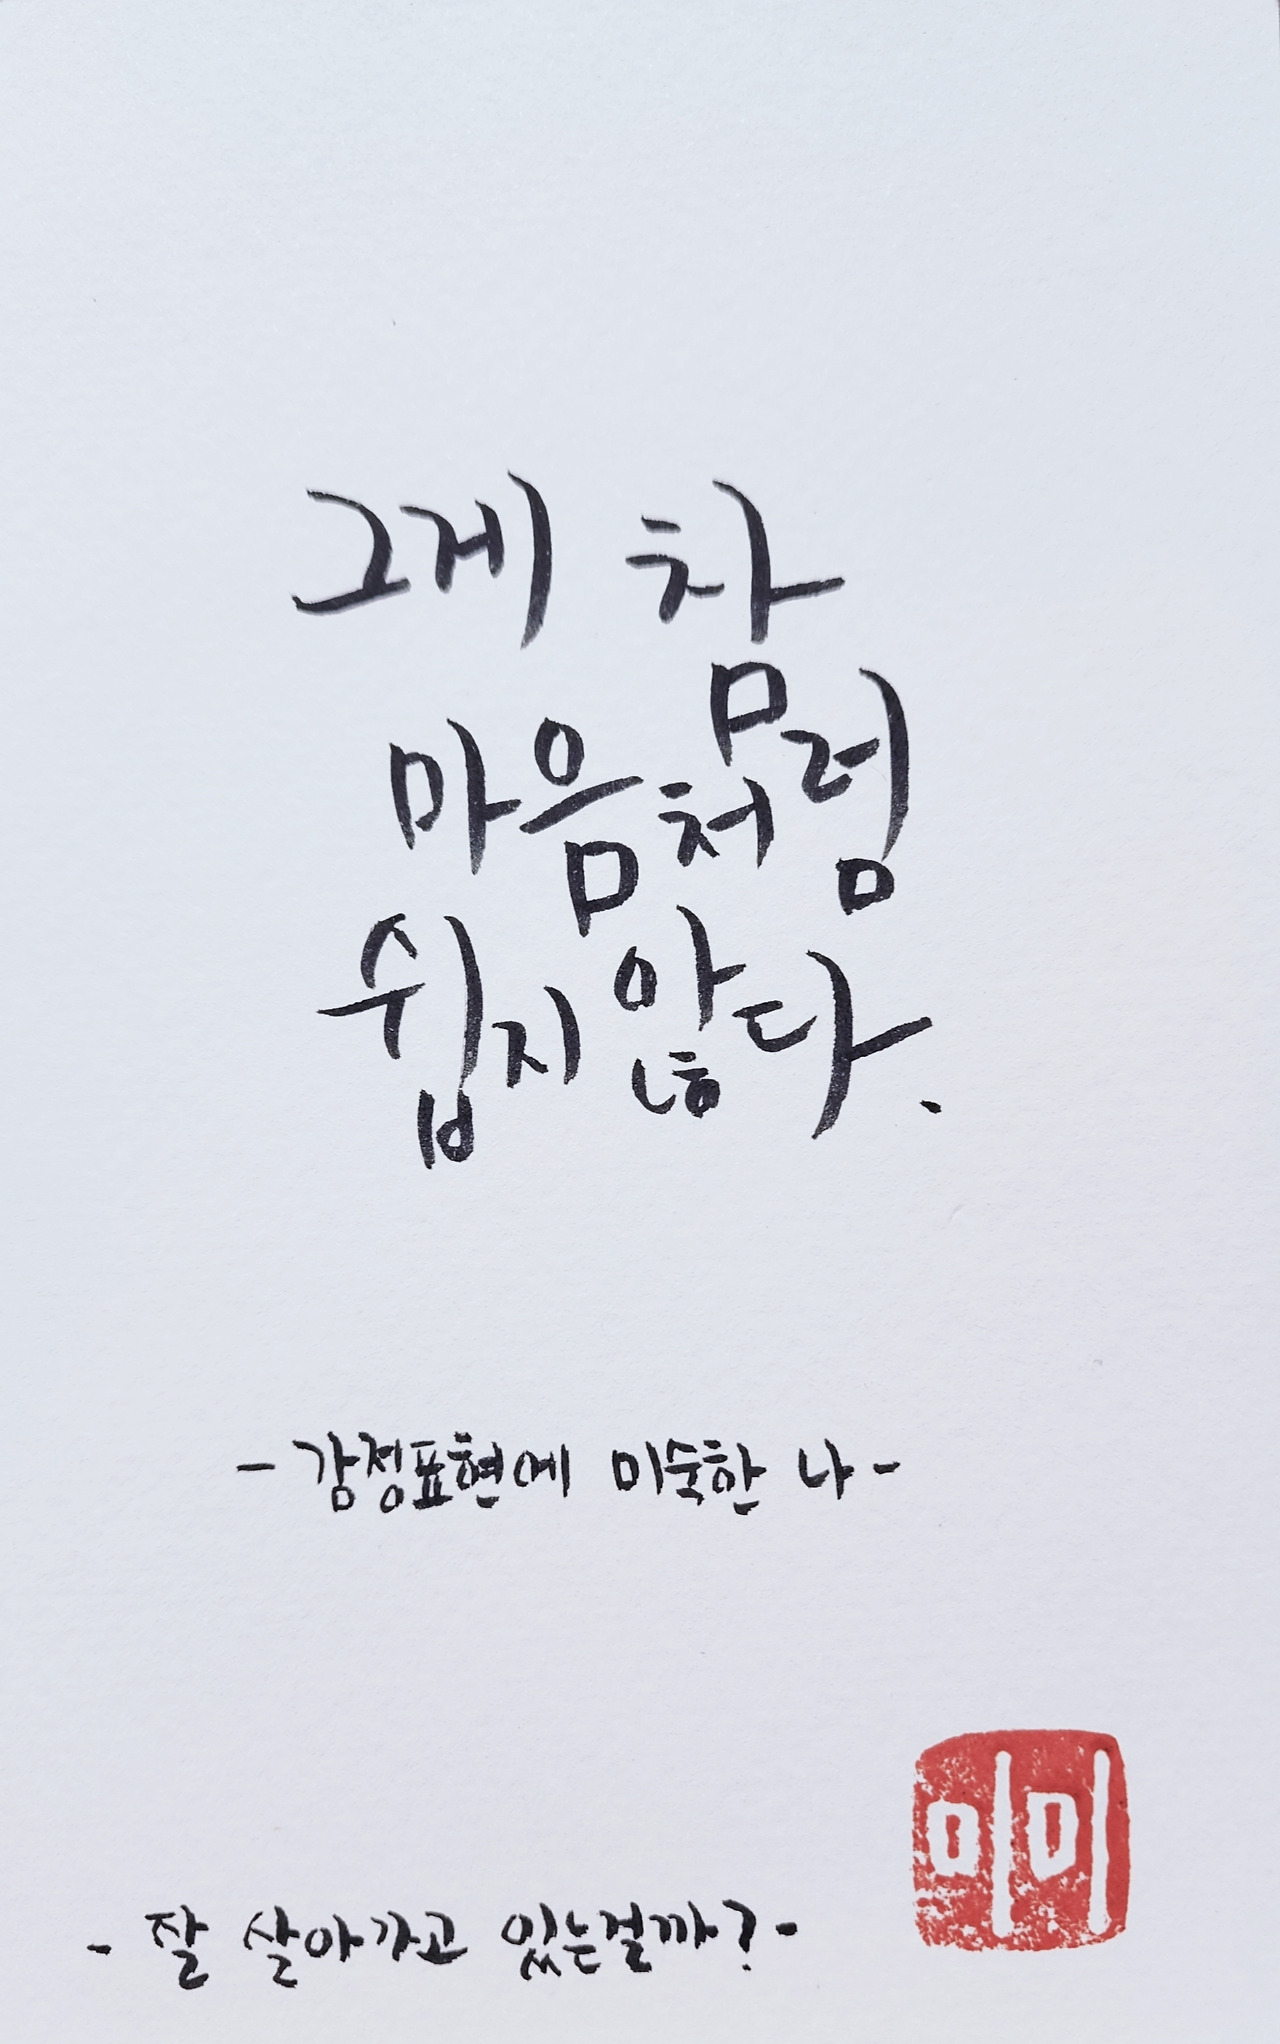 그게 참
마음처럼
쉽지 않다.
- 감정표현에 미숙한 나 -
미미
- 잘 살아가고 있는걸까? -